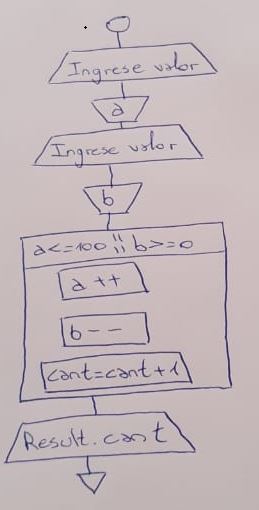 Ingrese valor
a
Ingrese valor
b
a<=100 || b>=0
a ++
b--
cant=cant+1
Result.cant